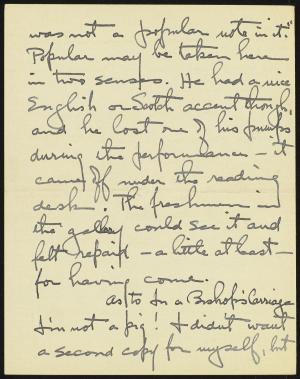 was not a popular note in it."
Popular may be taken here
in two senses. He had a nice
English or Scotch accent though,
and he lost one of his pumps
during the performance – it
came off under the reading
desk! The freshmen in
the gallery could see it and
felt repaid – a little at least –
for having come.
As to In a Bishop's Carriage
I'm not a pig! I didn't want
a second copy for myself, but